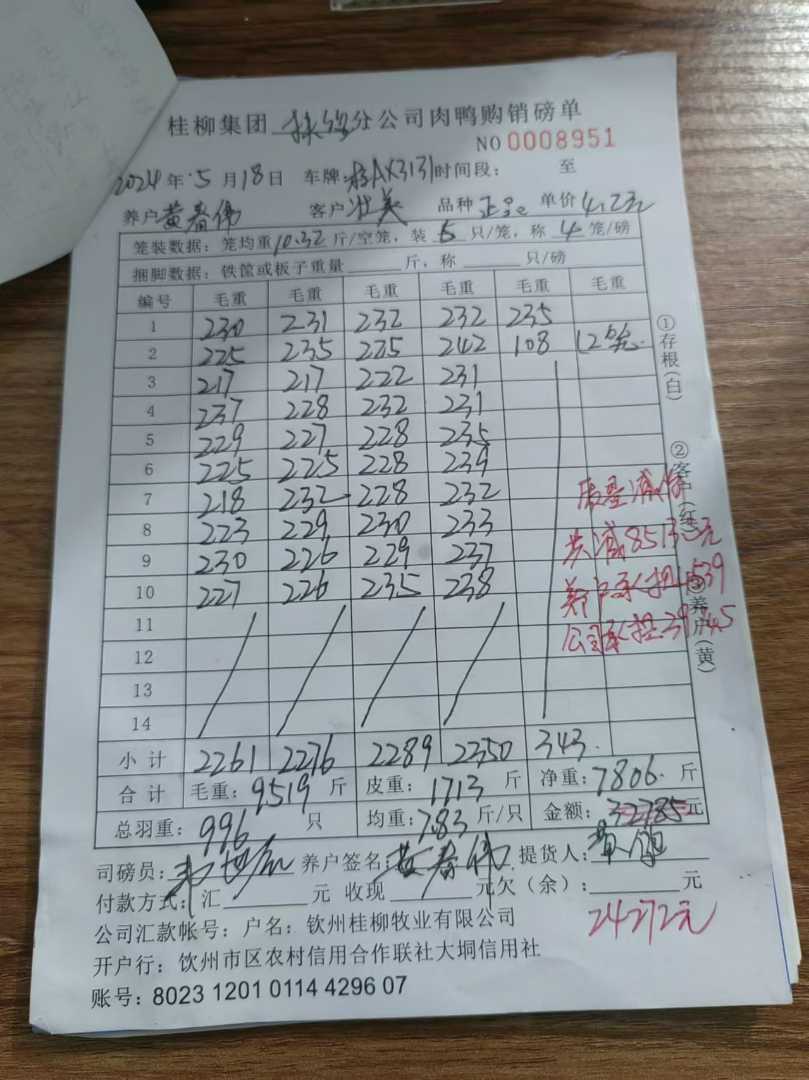 桂柳集团 分公司肉鸭购销磅单
NO 0008951
2024年 5月18日 车牌:桂AX3131 时间段: 至
养户 黄春伟 客户 壮美 品种 正品 单价 4.2元
笼装数据:笼均重10.32斤/空笼,装6只/笼,称4笼/磅
捆脚数据:铁筐或板子重量 斤,称 只/磅
编号 毛重 毛重 毛重 毛重 毛重 毛重
1 230 231 232 232 235
2 225 235 225 242 108 12只
3 217 217 222 231
4 237 228 232 231
5 229 227 228 235
6 225 225 228 239
7 218 232 228 232
8 223 229 230 233
9 230 226 229 237
10 227 226 235 238
11
12
13
14
小计 2261 2276 2289 2350 343
合计 毛重:9519斤 皮重:1713斤 净重:7806.斤
总羽重:996只 均重:7.83斤/只 金额:32785元
司磅员: 养户签名:黄春伟 提货人:
付款方式:汇 元 收现 元欠(余): 元
公司汇款帐号:户名:钦州桂柳牧业有限公司
开户行:饮州市区农村信用合作联社大垌信用社
账号:8023 1201 0114 4296 07
①存根(白)
②客户(红)
③养户(黄)
质量减价
共减8513元
养户承担4539
公司承担
24272元